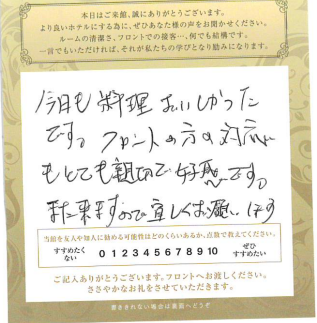 本日はご来館、誠にありがとうございます。
より良いホテルにする為に、ぜひあなた様の声をお聞かせください。
ルームの清潔さ、フロントでの接客…、何でも結構です。
一言でもいただければ、それが私たちの学びとなり励みになります。
今日も料理おいしかった
です。フロントの方の対応
もとても親切で好感です。
また来ますので宜しくお願いします
当館を友人や知人に勧める可能性はどのくらいあるか、点数で教えてください。
すすめたくない 0 1 2 3 4 5 6 7 8 9 10 ぜひすすめたい
ご記入ありがとうございます。フロントへお渡しください。
ささやかなお礼をさせていただきます。
書ききれない場合は裏面へどうぞ